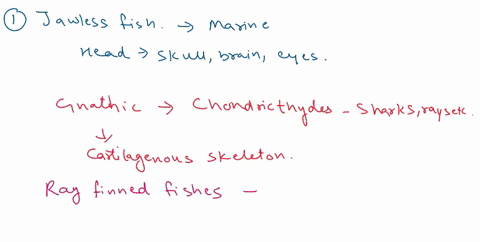 ① Jawless fish. → Marine
Head → Skull, brain, eyes.
Gnathic → Chondricthydes - Sharks, rays etc.
↳ Cartilagenous skeleton.
Ray finned fishes —